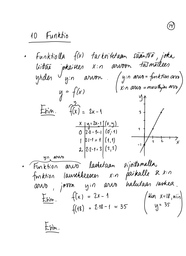 10 Funktio
• Funktiolla f(x) tarkoitetaan sääntöä, joka
liittää jokaiseen x:n arvoon täsmälleen
yhden y:n arvon.
y:n arvo = funktion arvo
x:n arvo = muuttujan arvo
y = f(x)
Esim. f(x) = 2x - 1
x | y = 2x-1 | (x, y)
0 | 2·0-1=-1 | (0,-1)
1 | 2·1-1=1 | (1,1)
2 | 2·2-1=3 | (2,3)
y:n arvo
• Funktion arvo lasketaan sijoittamalla
funktion lausekkeeseen x:n paikalle x:n
arvo, jossa y:n arvo halutaan laskea.
Esim. f(x) = 2x - 1
f(18) = 2·18 - 1 = 35
(kun x=18, niin
y = 35
Esim.